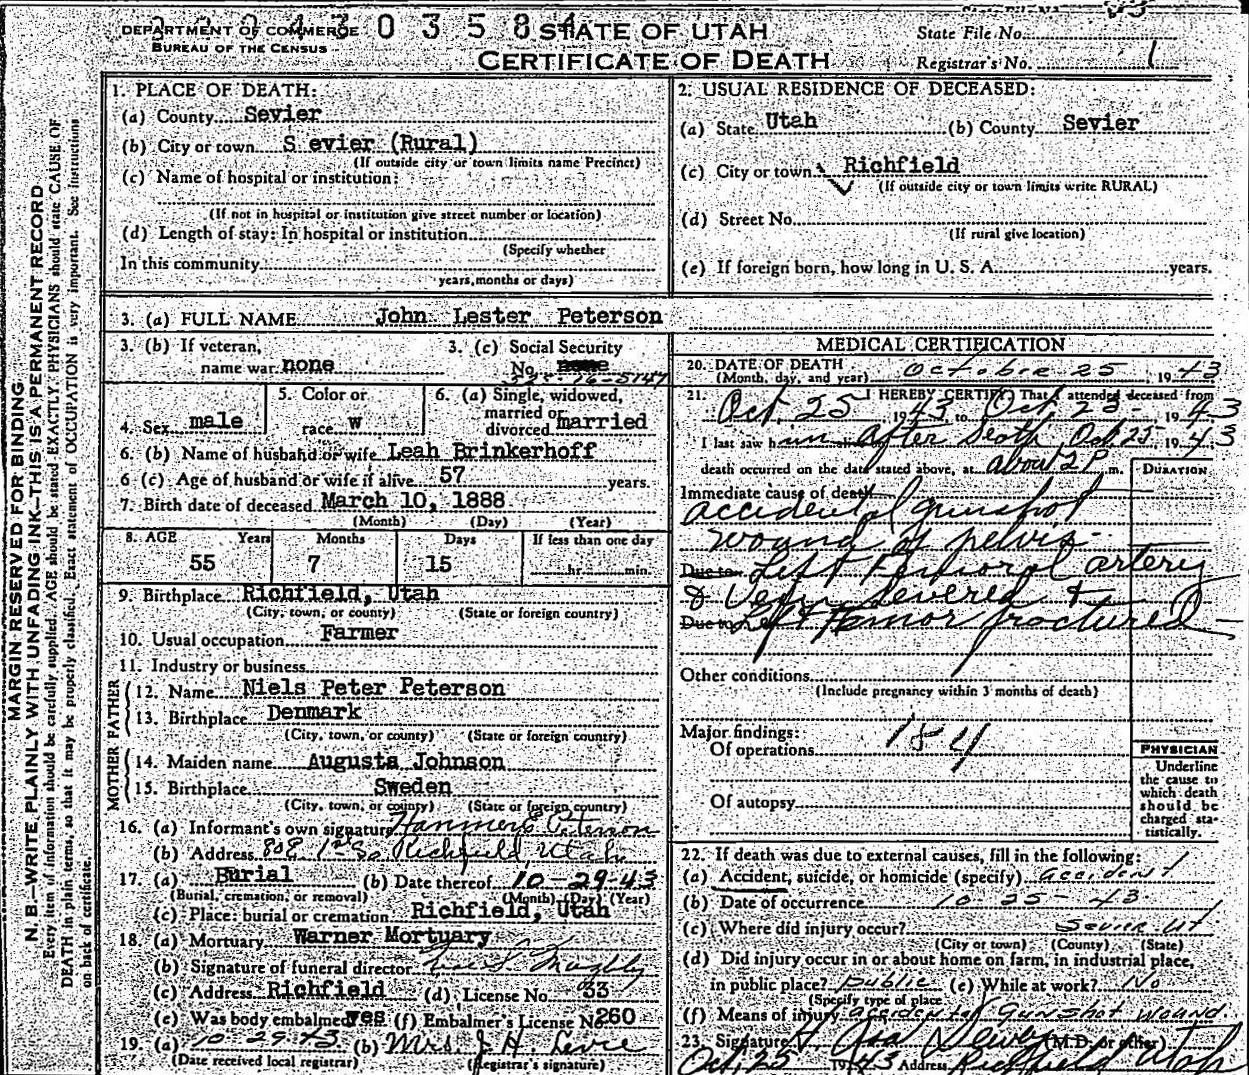 2 0 4 3 0 3 5 8 4
DEPARTMENT OF COMMERCE
BUREAU OF THE CENSUS
STATE OF UTAH
CERTIFICATE OF DEATH
State File No.
Registrar's No. 1
MARGIN RESERVED FOR BINDING
N. B.—WRITE PLAINLY WITH UNFADING INK—THIS IS A PERMANENT RECORD
Every item of information should be carefully supplied. AGE should be stated EXACTLY. PHYSICIANS should state CAUSE OF
DEATH in plain terms, so that it may be properly classified. Exact statement of OCCUPATION is very important. See instructions
on back of certificate.
1. PLACE OF DEATH:
(a) County Sevier
(b) City or town S evier (Rural)
(If outside city or town limits name Precinct)
(c) Name of hospital or institution:
(If not in hospital or institution give street number or location)
(d) Length of stay: In hospital or institution
(Specify whether
In this community
years, months or days)
2. USUAL RESIDENCE OF DECEASED:
(a) State Utah (b) County Sevier
(c) City or town Richfield
(If outside city or town limits write RURAL)
(d) Street No.
(If rural give location)
(e) If foreign born, how long in U. S. A. years.
3. (a) FULL NAME John Lester Peterson
3. (b) If veteran,
name war none
3. (c) Social Security
No. none
4. Sex male
5. Color or
race W
6. (a) Single, widowed,
married or
divorced married
6. (b) Name of husband or wife Leah Brinkerhoff
6 (c) Age of husband or wife if alive 57 years.
7. Birth date of deceased March 10, 1888
(Month) (Day) (Year)
8. AGE Years Months Days If less than one day
55 7 15 hr. min.
9. Birthplace Richfield, Utah
(City, town, or county) (State or foreign country)
10. Usual occupation Farmer
11. Industry or business
FATHER
12. Name Niels Peter Peterson
13. Birthplace Denmark
(City, town, or county) (State or foreign country)
MOTHER
14. Maiden name Augusta Johnson
15. Birthplace Sweden
(City, town, or county) (State or foreign country)
16. (a) Informant's own signature Peterson
(b) Address 1st So Richfield, Utah
17. (a) Burial (b) Date thereof 10-29-43
(Burial, cremation, or removal) (Month) (Day) (Year)
(c) Place: burial or cremation Richfield, Utah
18. (a) Mortuary Warner Mortuary
(b) Signature of funeral director
(c) Address Richfield (d) License No. 33
(e) Was body embalmed yes (f) Embalmer's License No 260
19. (a) 10-29-43 (b) Mrs. J. H.
(Date received local registrar) (Registrar's signature)
MEDICAL CERTIFICATION
20. DATE OF DEATH
(Month, day, and year) October 25, 1943
21. I HEREBY CERTIFY, That I attended deceased from
Oct. 25 1943 to Oct. 25 1943
I last saw him after Death Oct 25, 1943
death occurred on the date stated above, at about 2 P. m.
DURATION
Immediate cause of death
accidental gunshot
wound of pelvis
Due to Left Femoral artery
& Vein severed &
Due to Left Femor fractured
Other conditions
(Include pregnancy within 3 months of death)
Major findings: 184
Of operations
Of autopsy
PHYSICIAN
Underline
the cause to
which death
should be
charged sta-
tistically.
22. If death was due to external causes, fill in the following:
(a) Accident, suicide, or homicide (specify) accident
(b) Date of occurrence 10-25-43
(c) Where did injury occur? Sevier Ut
(City or town) (County) (State)
(d) Did injury occur in or about home on farm, in industrial place,
in public place? public (e) While at work? No
(Specify type of place
(f) Means of injury accidental Gunshot wound
23. Signature (M.D. or other)
Oct. 25 1943 Address Richfield Utah